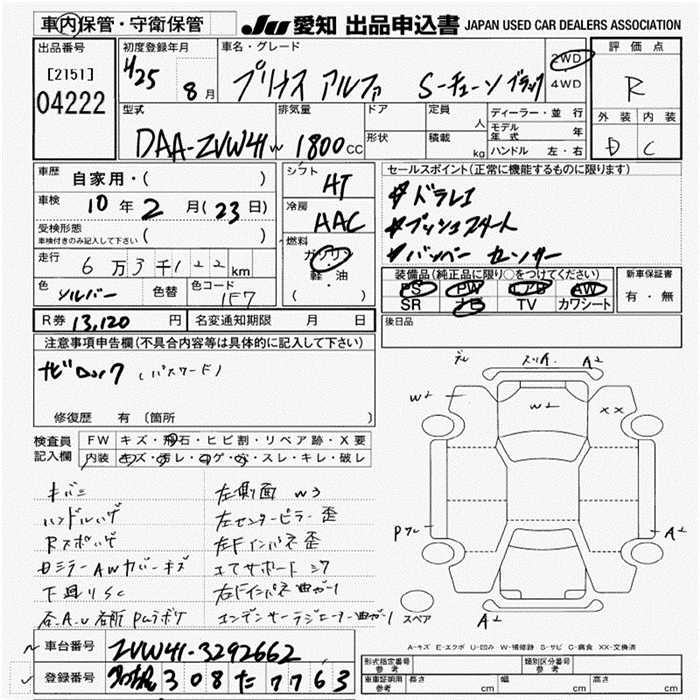 車内保管・守衛保管
JU 愛知 出品申込書 JAPAN USED CAR DEALERS ASSOCIATION
出品番号 初度登録年月 車名・グレード 評価点
[2151] H25 8月 プリウス アルファ S-チューン ブラック 2WD 4WD R
04222 型式 排気量 ドア 定員 人 ディーラー・並行 外装 内装
形状 積載 kg モデル年式 年 ハンドル 左・右
DAA-ZVW41W 1800cc D C
車歴 自家用・( ) シフト AT セールスポイント(正常に機能するものに限ります)
車検 10年2月(23日) 冷房 AAC ドラレコ
受検形態 車検付きのみ記入して下さい ( ) プッシュスタート
走行 6万3千122km 燃料 ガソリン・軽油 ( ) バンパーセンサー
色 シルバー 色替 色コード 1F7
装備品(純正品に限り○をつけてください) 新車保証書
PS PW エアB AW 有・無
SR ナビ TV カワシート
R券 13,120円 名変通知期限 月 日 後日品
注意事項申告欄(不具合内容等は具体的に記入して下さい)
ナビロック (パスワード)
修復歴 有 〔箇所
検査員記入欄 FW キズ・飛石・ヒビ割・リペア跡・X要
内装 キズ・汚レ・コゲ・穴・スレ・キレ・破レ
キバミ 左側面 W3
ハンドルハゲ 左センターピラー歪
Rスポハゲ 左Fインパネ歪
AWカバーキズ
下廻りSC 右Fインパネ曲ガリ
A2 A2
W2 W2 XX
A2
スペア A2
A-キズ E-エクボ U-凹み W-補修跡 S-サビ C-腐食 XX-交換済
車台番号 ZVW41-3292662
登録番号 308た7763
型式指定番号 参考 類別区分番号 参考
車庫証明用 参考 長さ cm 幅 cm 高さ cm